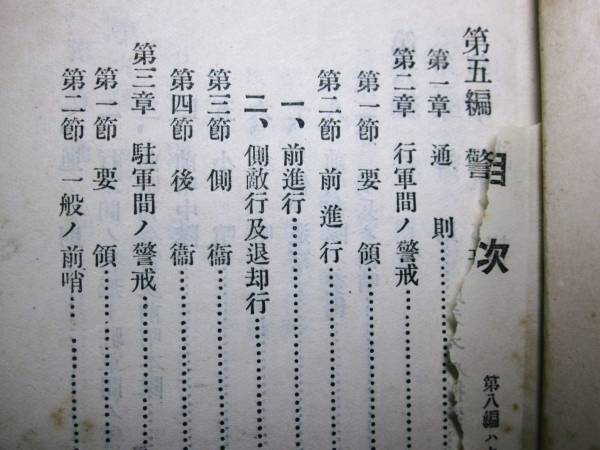 目次
第五編 警
第一章 通則
第二章 行軍間ノ警戒
第一節 要領
第二節 前進行
一、前進行
二、側敵行及退却行
第三節 側衞
第四節 後衞
第三章 駐軍間ノ警戒
第一節 要領
第二節 一般ノ前哨
第八編